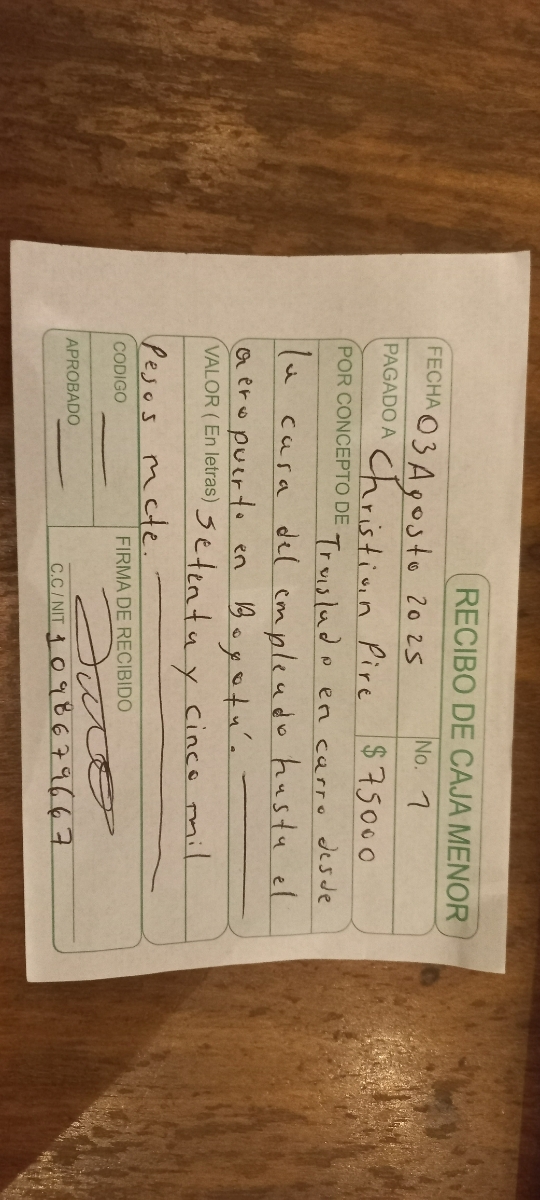 RECIBO DE CAJA MENOR
FECHA 03 Agosto 2025 No. 1
PAGADO A Christian Pire $ 75000
POR CONCEPTO DE Traslado en carro desde
la casa del empleado hasta el
aeropuerto en Bogotá.
VALOR ( En letras) Setenta y cinco mil
Pesos mcte.
CODIGO
FIRMA DE RECIBIDO
APROBADO
C.C / NIT 1098679667